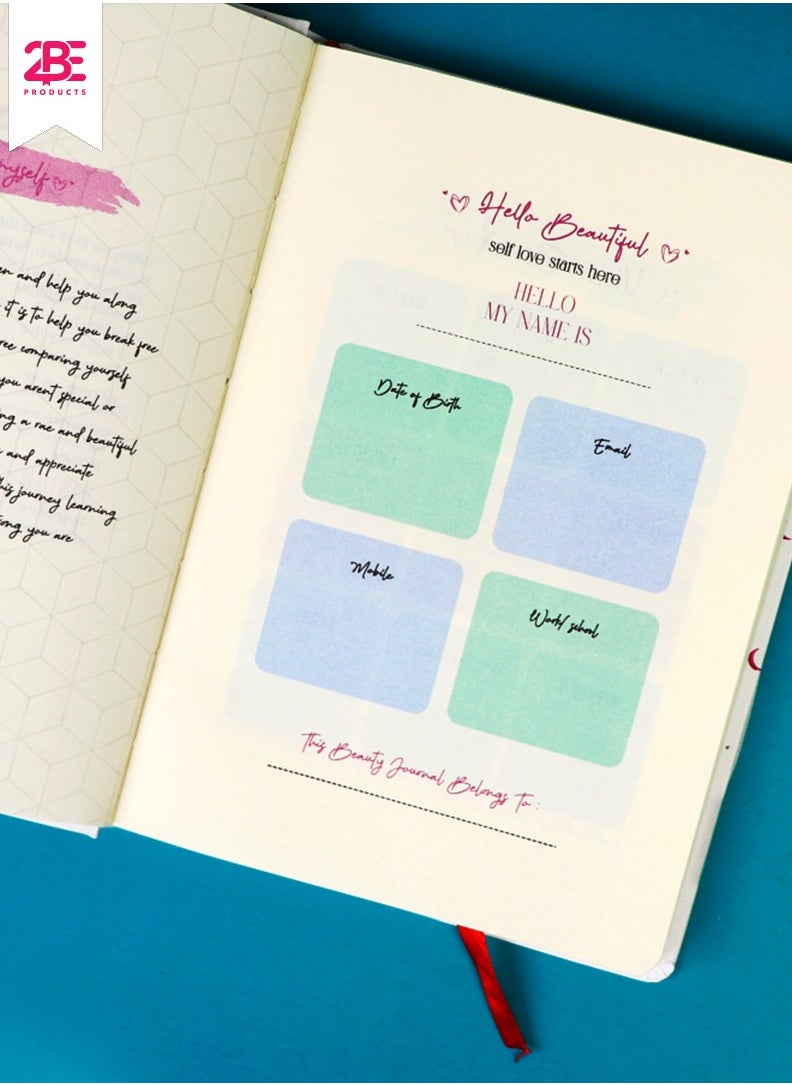 2BE
PRODUCTS
myself
and help you along
it is to help you break free
comparing yourself
you arent special or
a rae and beautiful
and appreciate
journey learning
you are
Hello Beautiful
self love starts here
HELLO
MY NAME IS
Date of Birth
Email
Mobile
Work/ school
This Beauty Journal Belongs To :